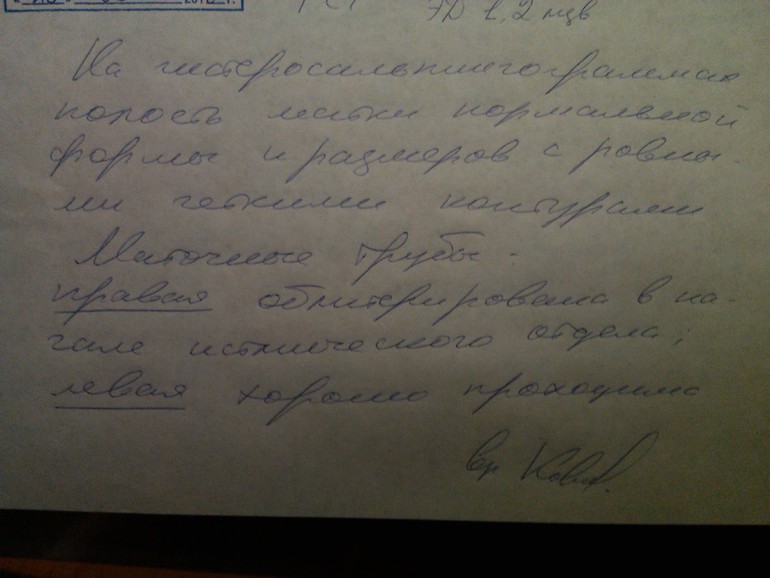 ГСГ ЭД 1,2 мзв
На гистеросальпингограммах
полость матки нормальной
формы и размеров с ровны-
ми четкими контурами
Маточные трубы -
правая облитерирована в на-
чале истмического отдела;
левая хорошо проходима
вр.